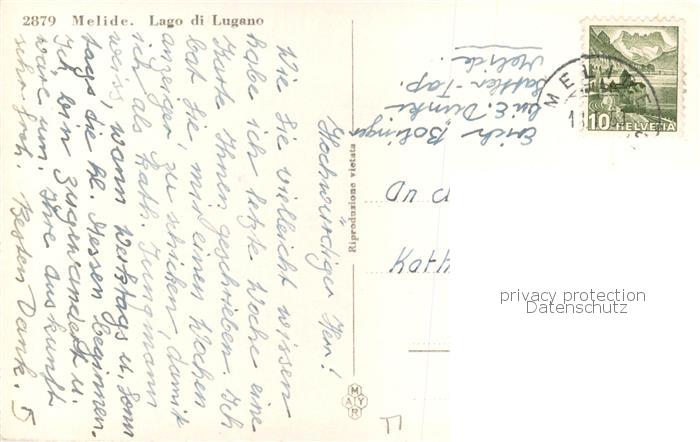 2879 Melide. Lago di Lugano
Hochwürdiger Herr!
Wie Sie vielleicht wissen
habe ich letzte Woche eine
Karte Ihnen geschrieben. Ich
bat Sie, mir einen Wochen
anzeiger zu schicken, damit
ich als kath. Jungmann
weiss, wann Werktags u. Sonn
tags die hl. Messen beginnen.
Ich bin zugewandert u.
wäre um Ihre Auskunft
sehr froh. Besten Dank.
Erich Bolinger
bei E. Dunki
Sattler-Tap.
Melide.
Riproduzione vietata
MAYR
MELIDE
10 HELVETIA
privacy protection
Datenschutz